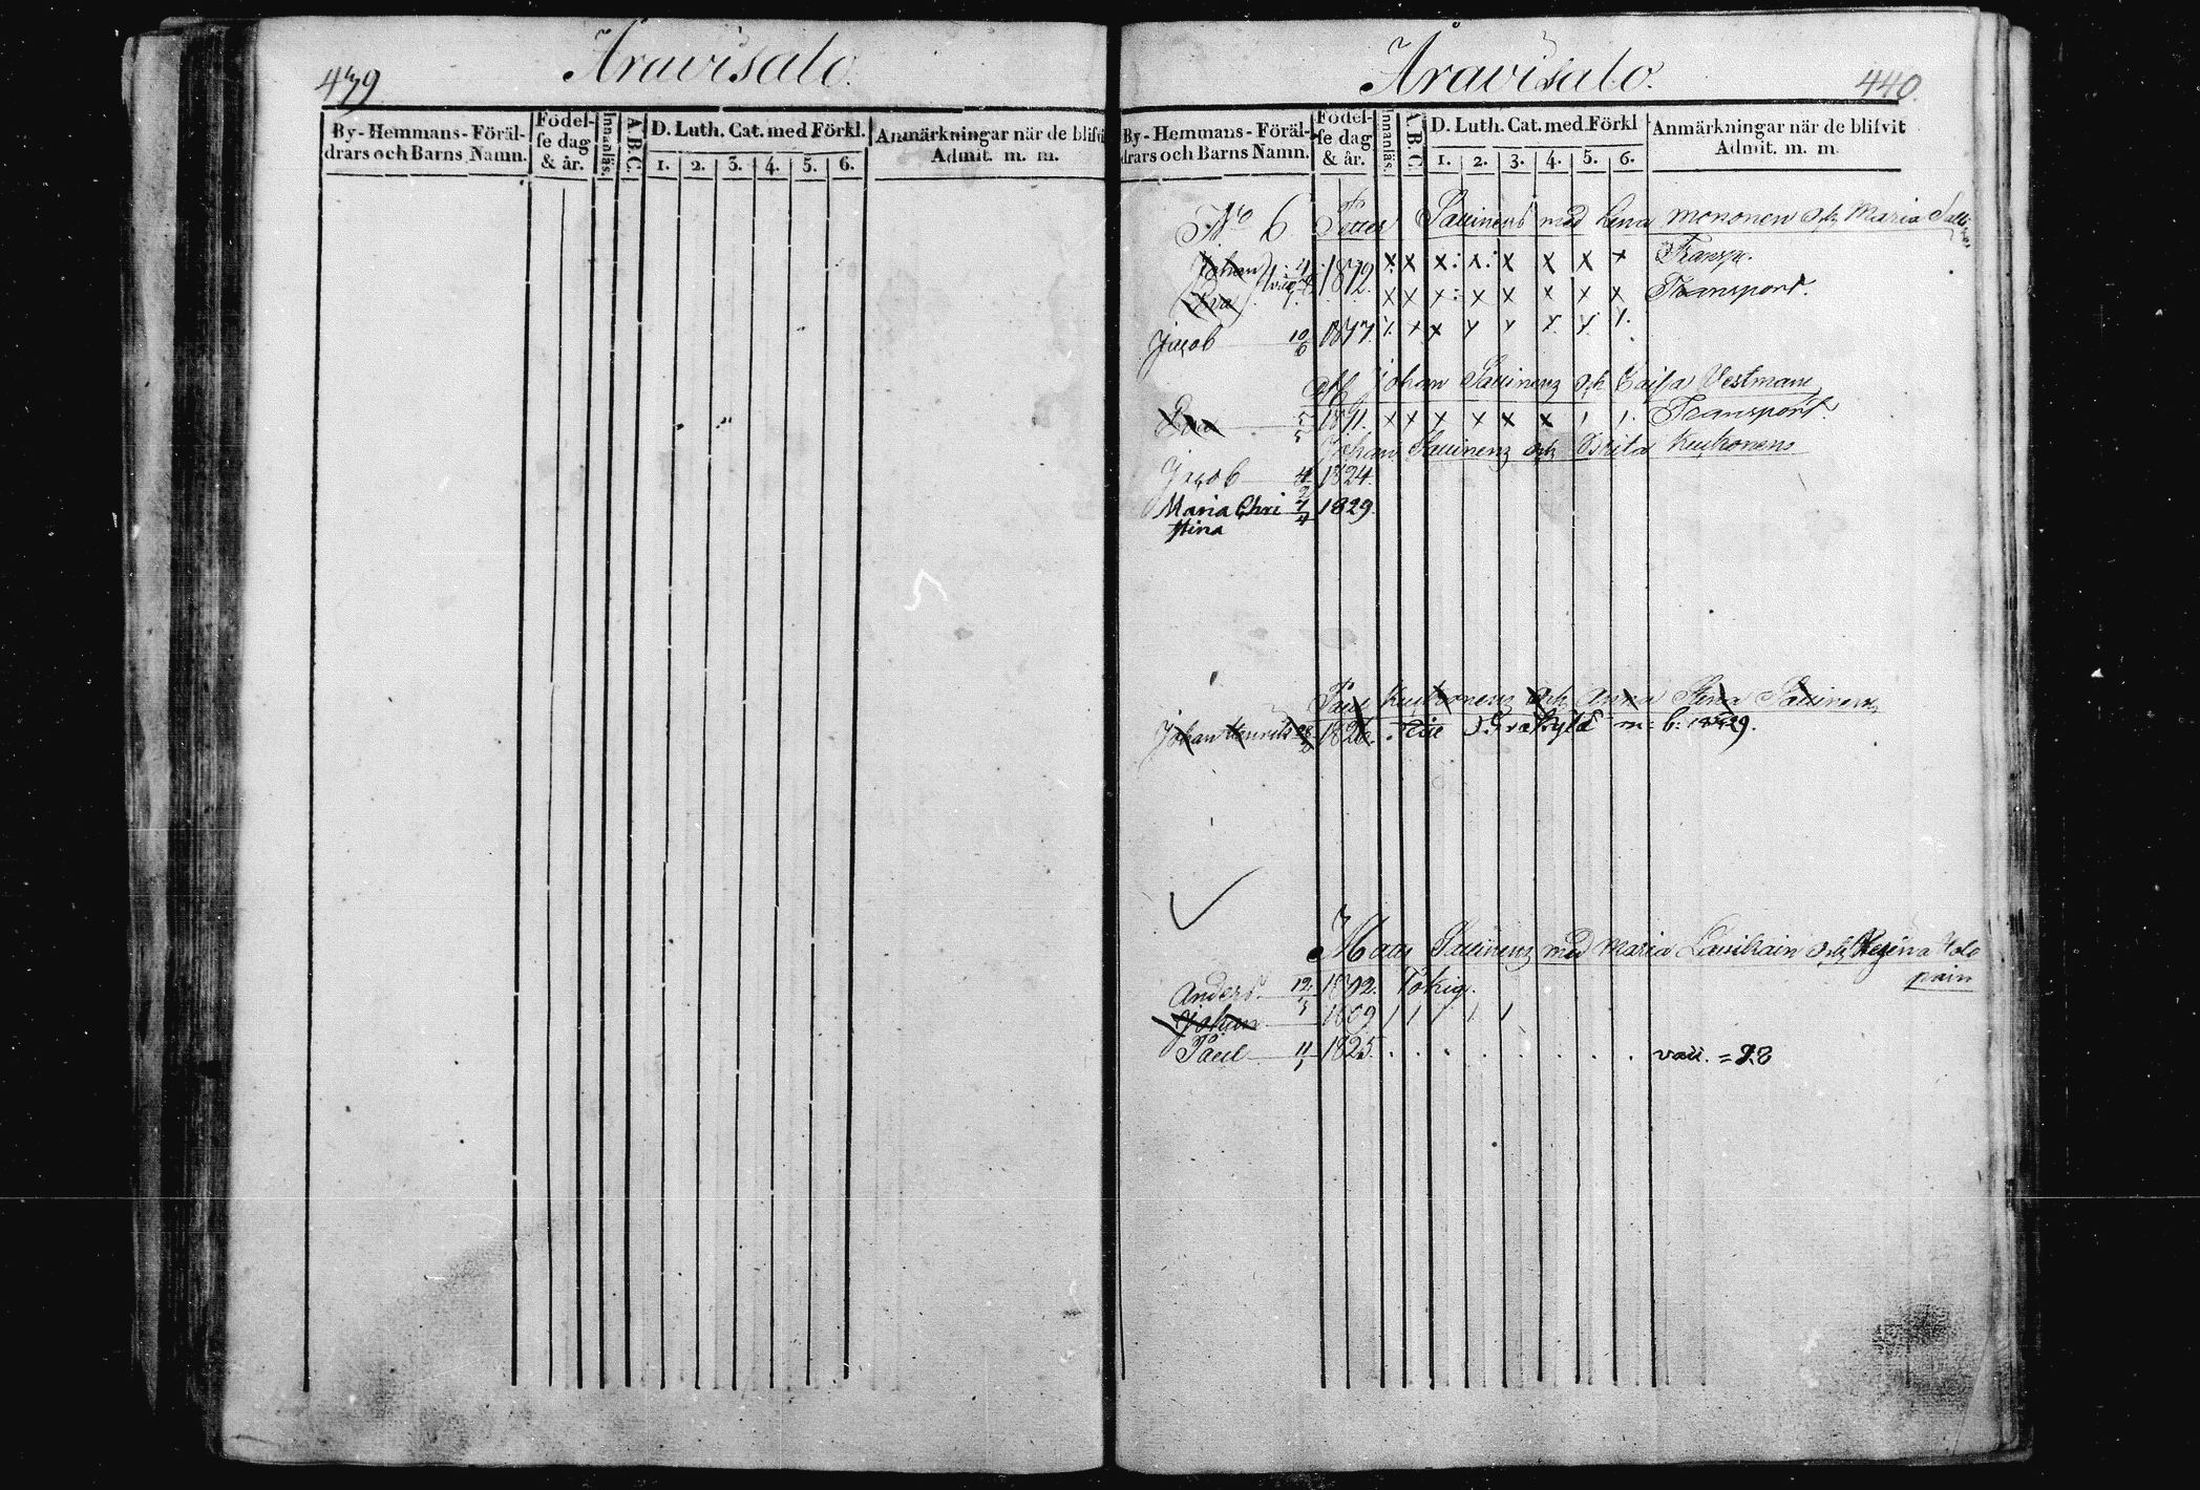 439
Aravisalo.
By-Hemmans-Föräl-
drars och Barns Namn.
Födel-
se dag
& år.
Innanläs.
A.B.C.
D. Luth. Cat. med Förkl.
1. 2. 3. 4. 5. 6.
Anmärkningar när de blifvi
Admit. m. m.
Aravisalo.
440.
By-Hemmans-Föräl-
drars och Barns Namn.
Födel-
se dag
& år.
Innanläs.
A.B.C.
D. Luth. Cat. med Förkl
1. 2. 3. 4. 5. 6.
Anmärkningar när de blifvit
Admit. m. m.
No 6 Petter Sauinens med Lena Mononen och Maria
Johan 1812. x x x x x x x x Transp.
Eva x x x x x x x x Transport.
Jacob 10/6 x x x x x x
Johan Sauinens och Caisa Vestmans
Eva x x x x x x Transport.
Johan Sauinens och Brita Kuckonens
Jacob 1824.
Maria Chri 1829.
stina
Paul Kuckonens och Anna Stina Sauinens
Johan Henrik 1826. m: b: 1829.
Sauinens med Maria Lauikain och Regina Holo
pain
Anders 12/5 Tokig.
Johan 1809 / / / / /
Paul 11/5 1825. . . . . . . . . vacc. = 28